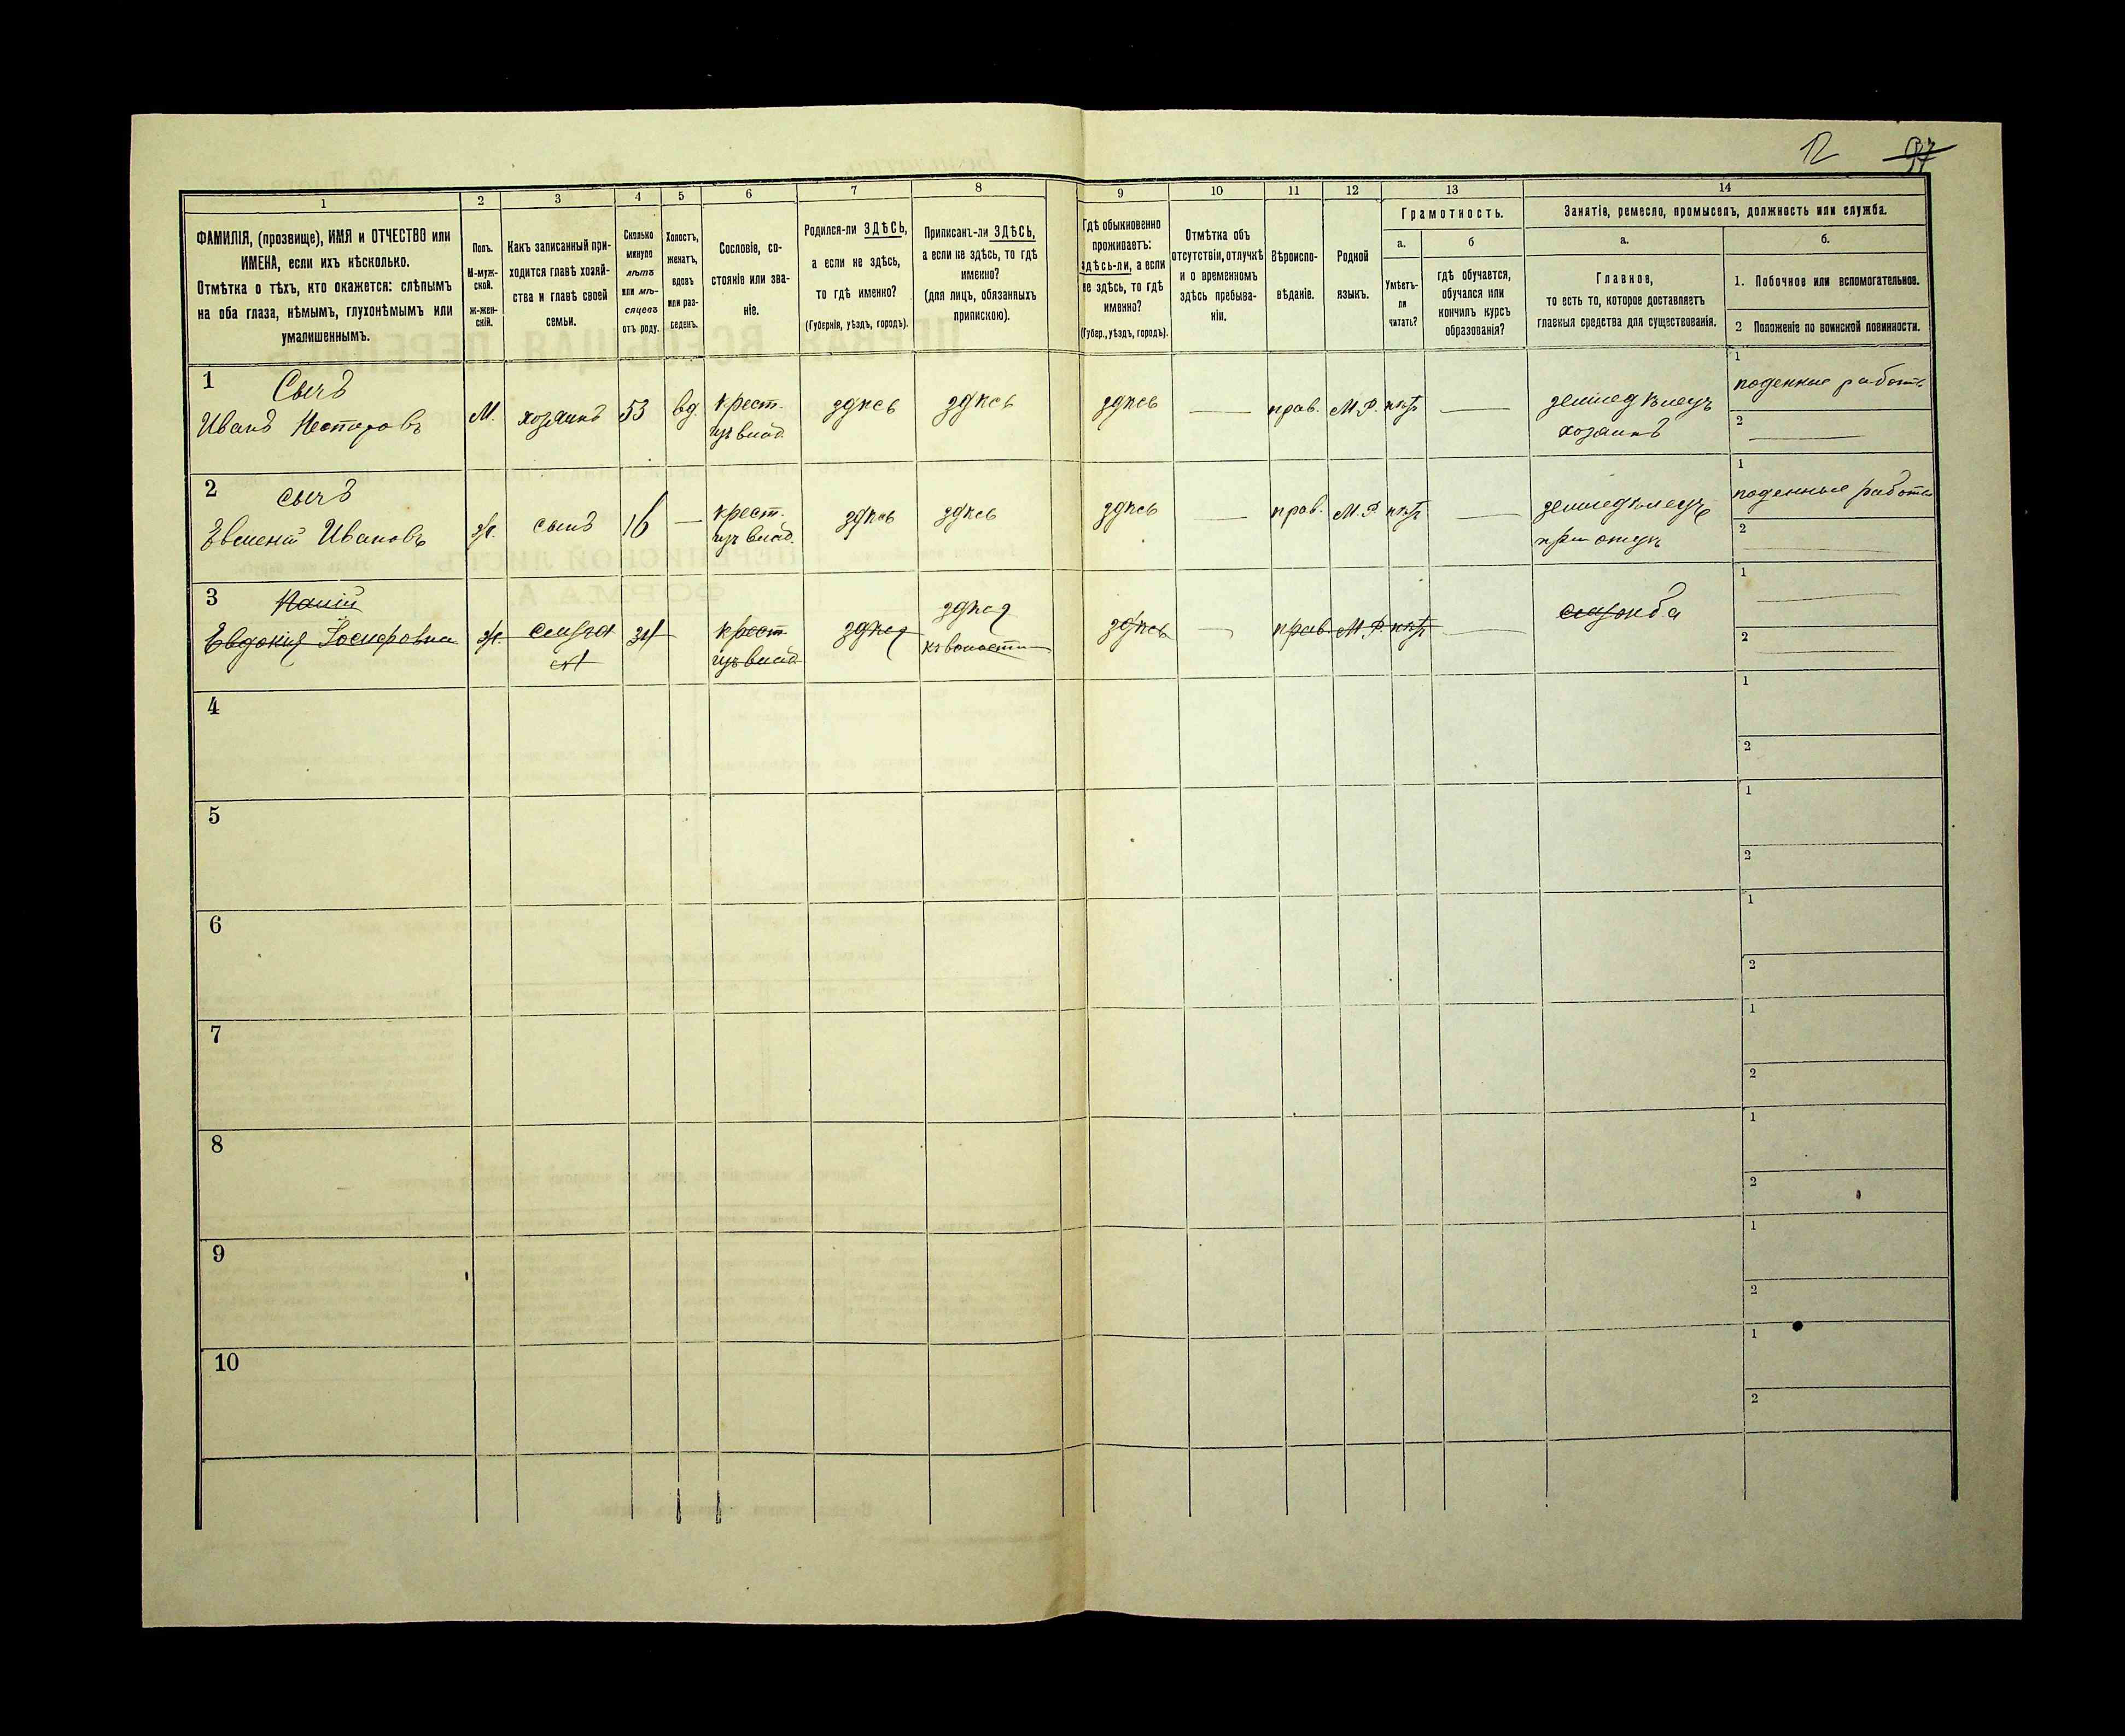 12 97
1 2 3 4 5 6 7 8 9 10 11 12 13 14
ФАМИЛІЯ, (прозвище), ИМЯ и ОТЧЕСТВО или
ИМЕНА, если ихъ нѣсколько.
Отмѣтка о тѣхъ, кто окажется: слѣпымъ
на оба глаза, нѣмымъ, глухонѣмымъ или
умалишеннымъ.
Полъ.
М-муж-
ской.
ж-жен-
скій.
Какъ записанный при-
ходится главѣ хозяй-
ства и главѣ своей
семьи.
Сколько
минуло
лѣтъ
или мѣ-
сяцевъ
отъ роду.
Холостъ,
женатъ,
вдовъ
или раз-
веденъ.
Сословіе, со-
стояніе или зва-
ніе.
Родился-ли ЗДѢСЬ,
а если не здѣсь,
то гдѣ именно?
(Губернія, уѣздъ, городъ).
Приписанъ-ли ЗДѢСЬ,
а если не здѣсь, то гдѣ
именно?
(для лицъ, обязанныхъ
припискою).
Гдѣ обыкновенно
проживаетъ:
здѣсь-ли, а если
не здѣсь, то гдѣ
именно?
(Губер., уѣздъ, городъ).
Отмѣтка объ
отсутствіи, отлучкѣ
и о временномъ
здѣсь пребыва-
ніи.
Вѣроиспо-
вѣданіе.
Родной
языкъ.
Грамотность.
а.
Умѣетъ-
ли
читать?
б
гдѣ обучается,
обучался или
кончилъ курсъ
образованія?
Занятіе, ремесло, промыселъ, должность или служба.
а.
Главное,
то есть то, которое доставляетъ
главныя средства для существованія.
б.
1. Побочное или вспомогательное.
2 Положеніе по воинской повинности.
1 Сычъ
Иванъ Нестеровъ
М. хозяинъ 53 вд. крест.
изъ влад.
здѣсь здѣсь здѣсь — прав. М.Р. нѣтъ — земледѣлецъ
хозяинъ
1 поденные работы
2 —
2 Сычъ
Евменій Ивановъ
м. сынъ 16 — крест.
изъ влад.
здѣсь здѣсь здѣсь — прав. М.Р. нѣтъ — земледѣлецъ
при отцѣ
1 поденные работы
2 —
3
Евдокія Іосифовна
ж. слуга 34 крест.
изъ влад.
здѣсь здѣсь
къ волости
здѣсь — прав. М.Р. нѣтъ — служба
1 —
2 —
4 1
2
5 1
2
6 1
2
7 1
2
8 1
2
9 1
2
10 1
2